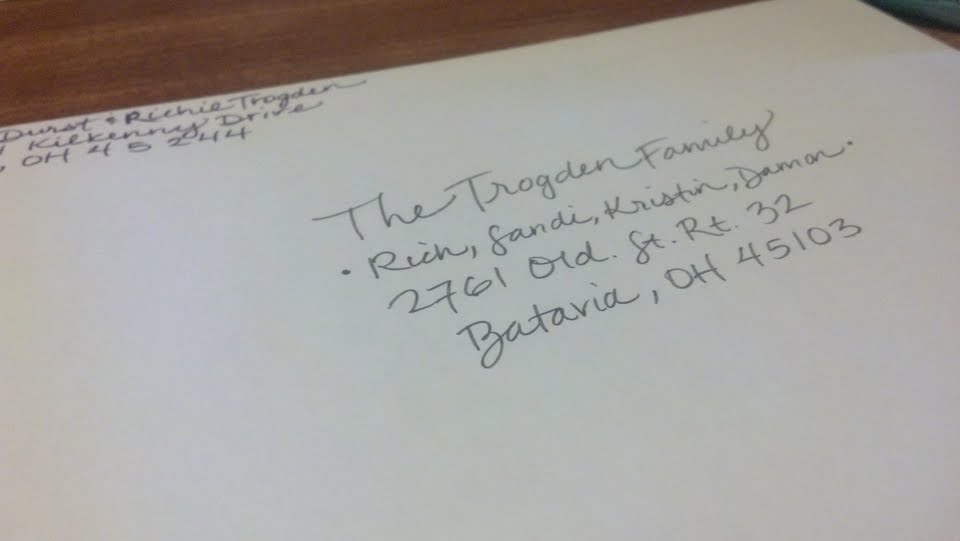 Durst & Richie Trogden
Kilkenny Drive
, OH 45244
The Trogden Family
• Rich, Sandi, Kristin, Damon •
2761 Old. St. Rt. 32
Batavia, OH 45103